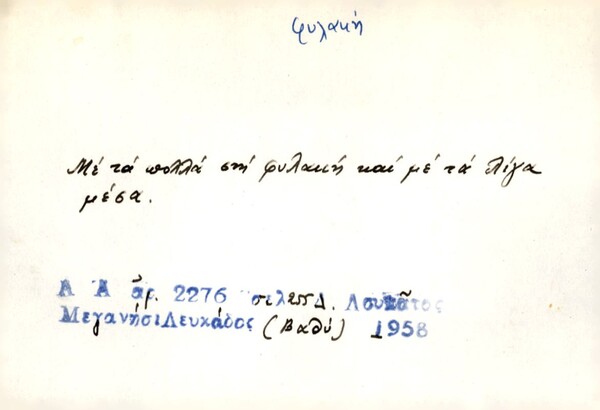 φυλακή
Μέ τά πολλά στή φυλακή καί μέ τά λίγα
μέσα.
Λ Α ἄρ. 2276 σελ. Δ. Λουκᾶτος
Μεγανήσι Λευκάδος (Βαθύ) 1958